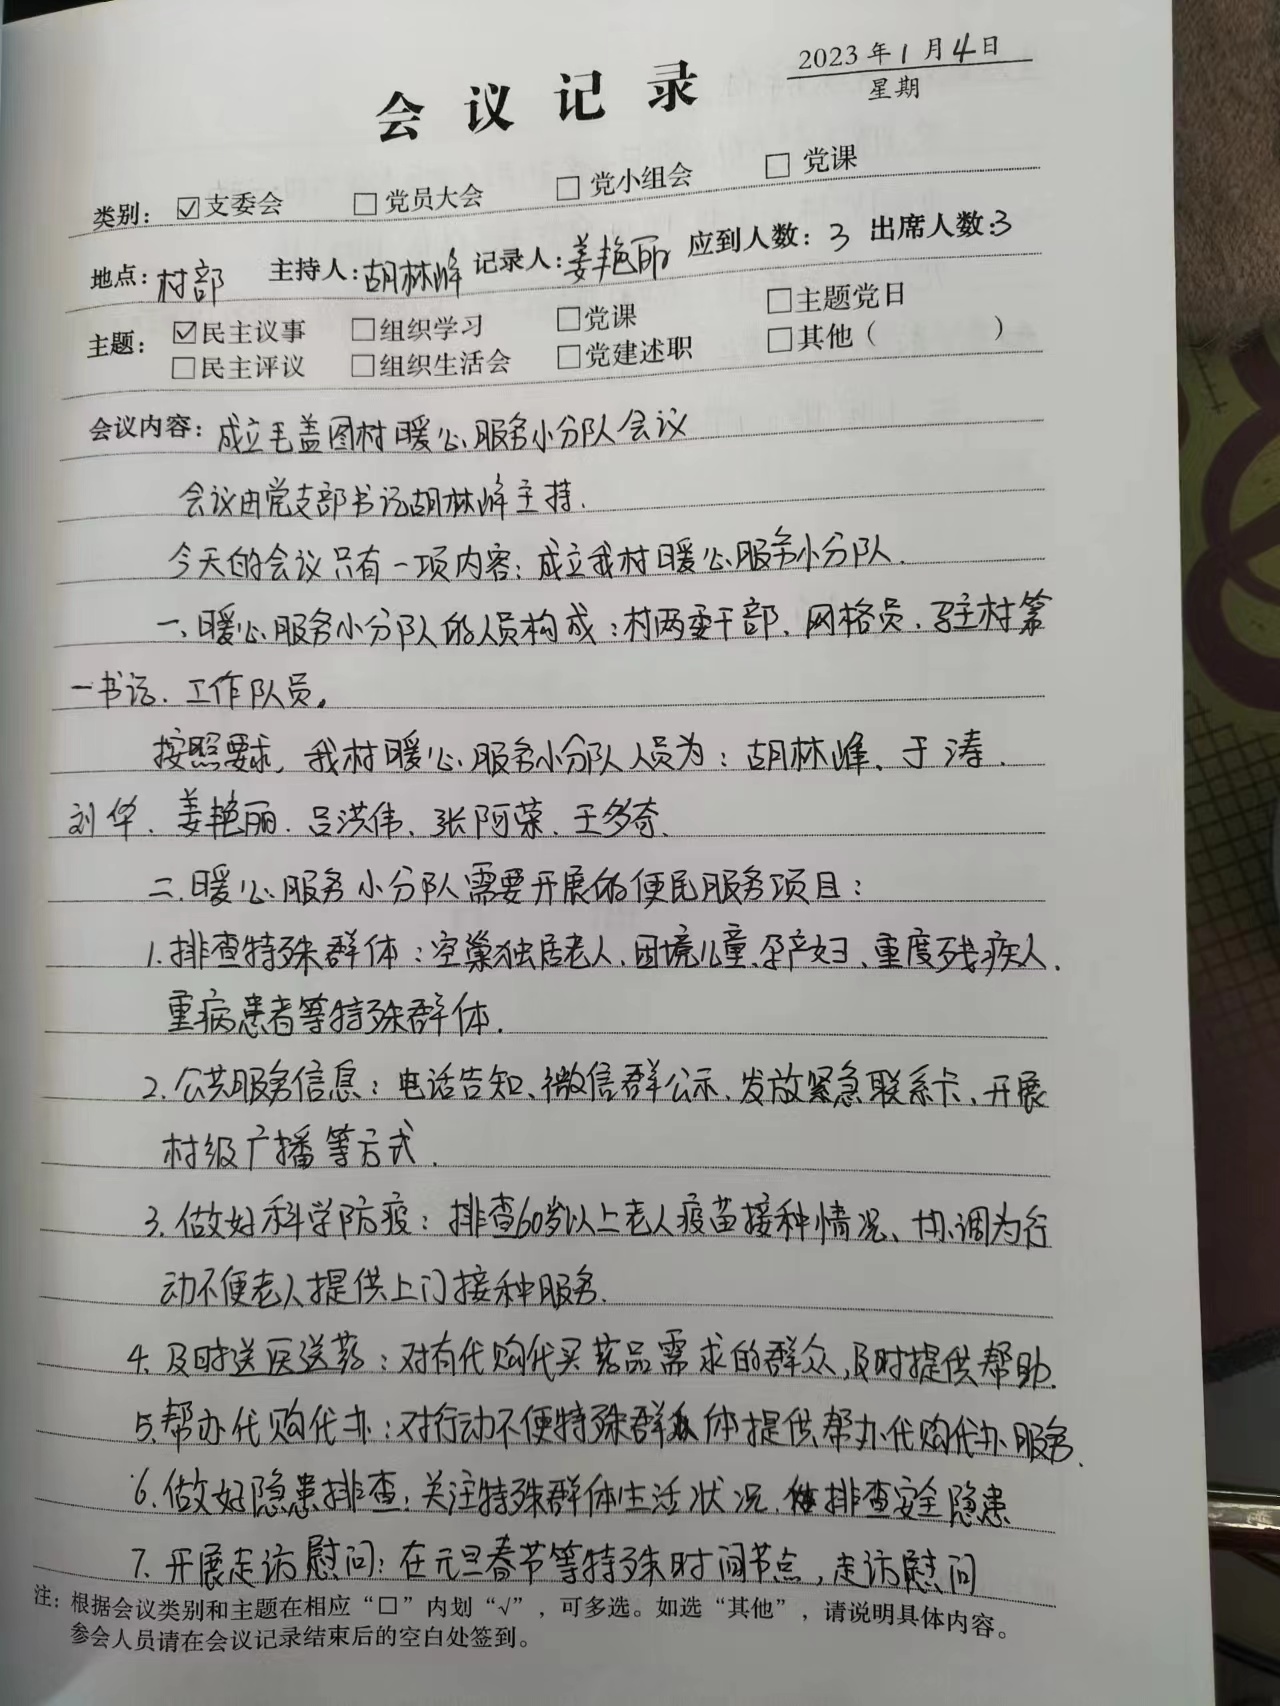 2023年1月4日
星期
会议记录
类别： ☑支委会 □党员大会 □党小组会 □党课
地点：村部 主持人：胡林峰 记录人：姜艳丽 应到人数：3 出席人数：3
主题： ☑民主议事 □组织学习 □党课 □主题党日
□民主评议 □组织生活会 □党建述职 □其他（ ）
会议内容：成立毛盖图村暖心服务小分队会议
会议由党支部书记胡林峰主持.
今天的会议只有一项内容：成立我村暖心服务小分队.
一、暖心服务小分队的人员构成：村两委干部、网格员、驻村第
一书记、工作队员。
按照要求，我村暖心服务小分队人员为：胡林峰、于涛、
刘华、姜艳丽、吕洪伟、张阿荣、王多奇、
二、暖心服务小分队需要开展的便民服务项目：
1.排查特殊群体：空巢独居老人、困境儿童、孕产妇、重度残疾人、
重病患者等特殊群体.
2.公共服务信息：电话告知、微信群公示、发放紧急联系卡、开展
村级广播等方式.
3.做好科学防疫：排查60岁以上老人疫苗接种情况、协调为行
动不便老人提供上门接种服务.
4.及时送医送药：对有代购代买药品需求的群众，及时提供帮助.
5.帮办代购代办：对行动不便特殊群体提供帮办代购代办服务.
6.做好隐患排查：关注特殊群体生活状况，排查安全隐患
7.开展走访慰问：在元旦春节等特殊时间节点，走访慰问
注：根据会议类别和主题在相应“□”内划“√”，可多选。如选“其他”，请说明具体内容。
参会人员请在会议记录结束后的空白处签到。